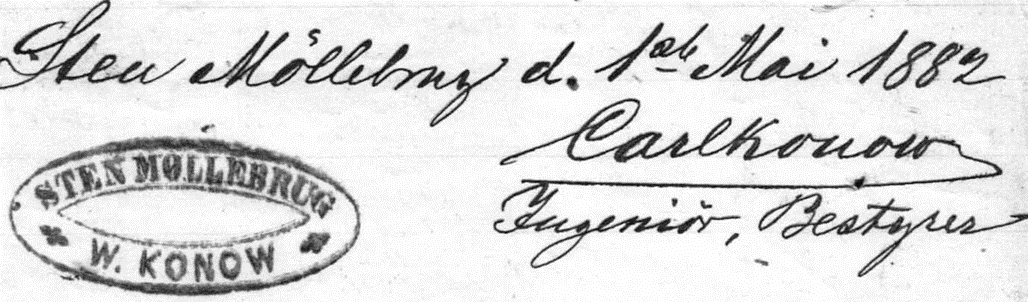 Sten Möllebrug d. 1ste Mai 1882
Carl Konow
Ingeniör, Bestyrer
STEN MØLLEBRUG
W. KONOW